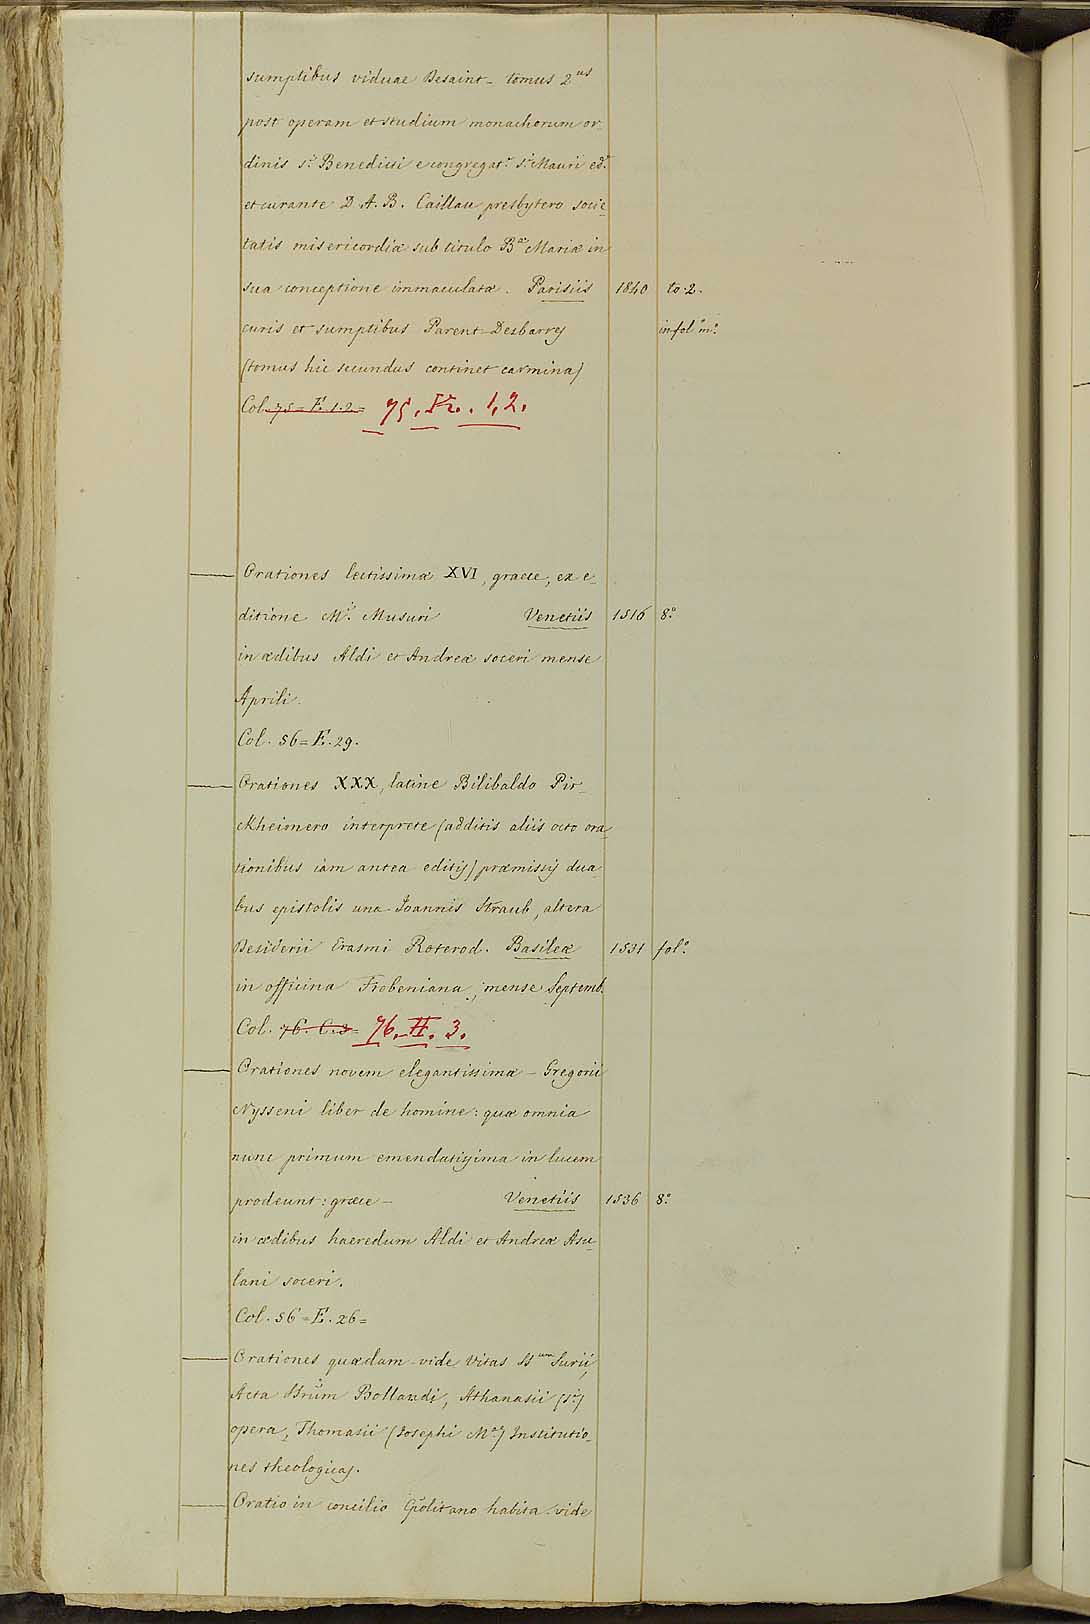 sumptibus viduae Desaint - tomus 2us
post operam et studium monachorum or-
dinis Sti Benedicti e congregate Sti Mauri edte
et curante D. A. B. Caillau presbytero socie-
tatis misericordiæ sub titulo Bæ Mariæ in
sua conceptione immaculatæ. Parisiis 1840 to. 2.
curis et sumptibus Parent-Desbarres in folo mo
(tomus hic secundus continet carmina)
Col. 75 = F. 1. 2 = 75. 1, 2.
— Orationes lectissimæ XVI, graece, ex e-
ditione Mi. Musuri Venetiis 1516 8.o
in ædibus Aldi et Andreæ soceri mense
Aprili.
Col. 56 = E. 29.
— Orationes XXX, latine Bilibaldo Pir-
ckheimero interprete (additis aliis octo ora-
tionibus iam antea editis) præmissis dua-
bus epistolis una Joannis Straub, altera
Desiderii Erasmi Roterod. Basileæ 1531 fol.o
in officina Frobeniana, mense Septemb.
Col. 76. C. 3 = 76. H. 3.
— Orationes novem elegantissimæ - Gregorii
Nysseni liber de homine: quæ omnia
nunc primum emendatissima in lucem
prodeunt: græce - Venetiis 1536 8.o
in ædibus haeredum Aldi et Andreæ Asu-
lani soceri.
Col. 56 = E. 26 =
— Orationes quædam vide Vitas SSum Surii,
Acta SSrum Bollandi, Athanasii (Sti)
opera, Thomasii (Josephi Mæ) Institutio-
nes theologicas.
— Oratio in concilio Cpolitano habita. vide